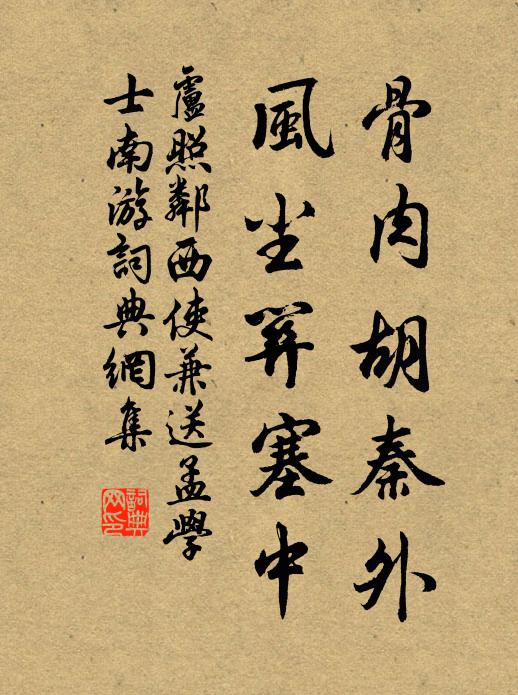 骨肉胡秦外
風尘關塞中
盧照鄰西使兼送孟學
士南游詞典網集
詞典网印